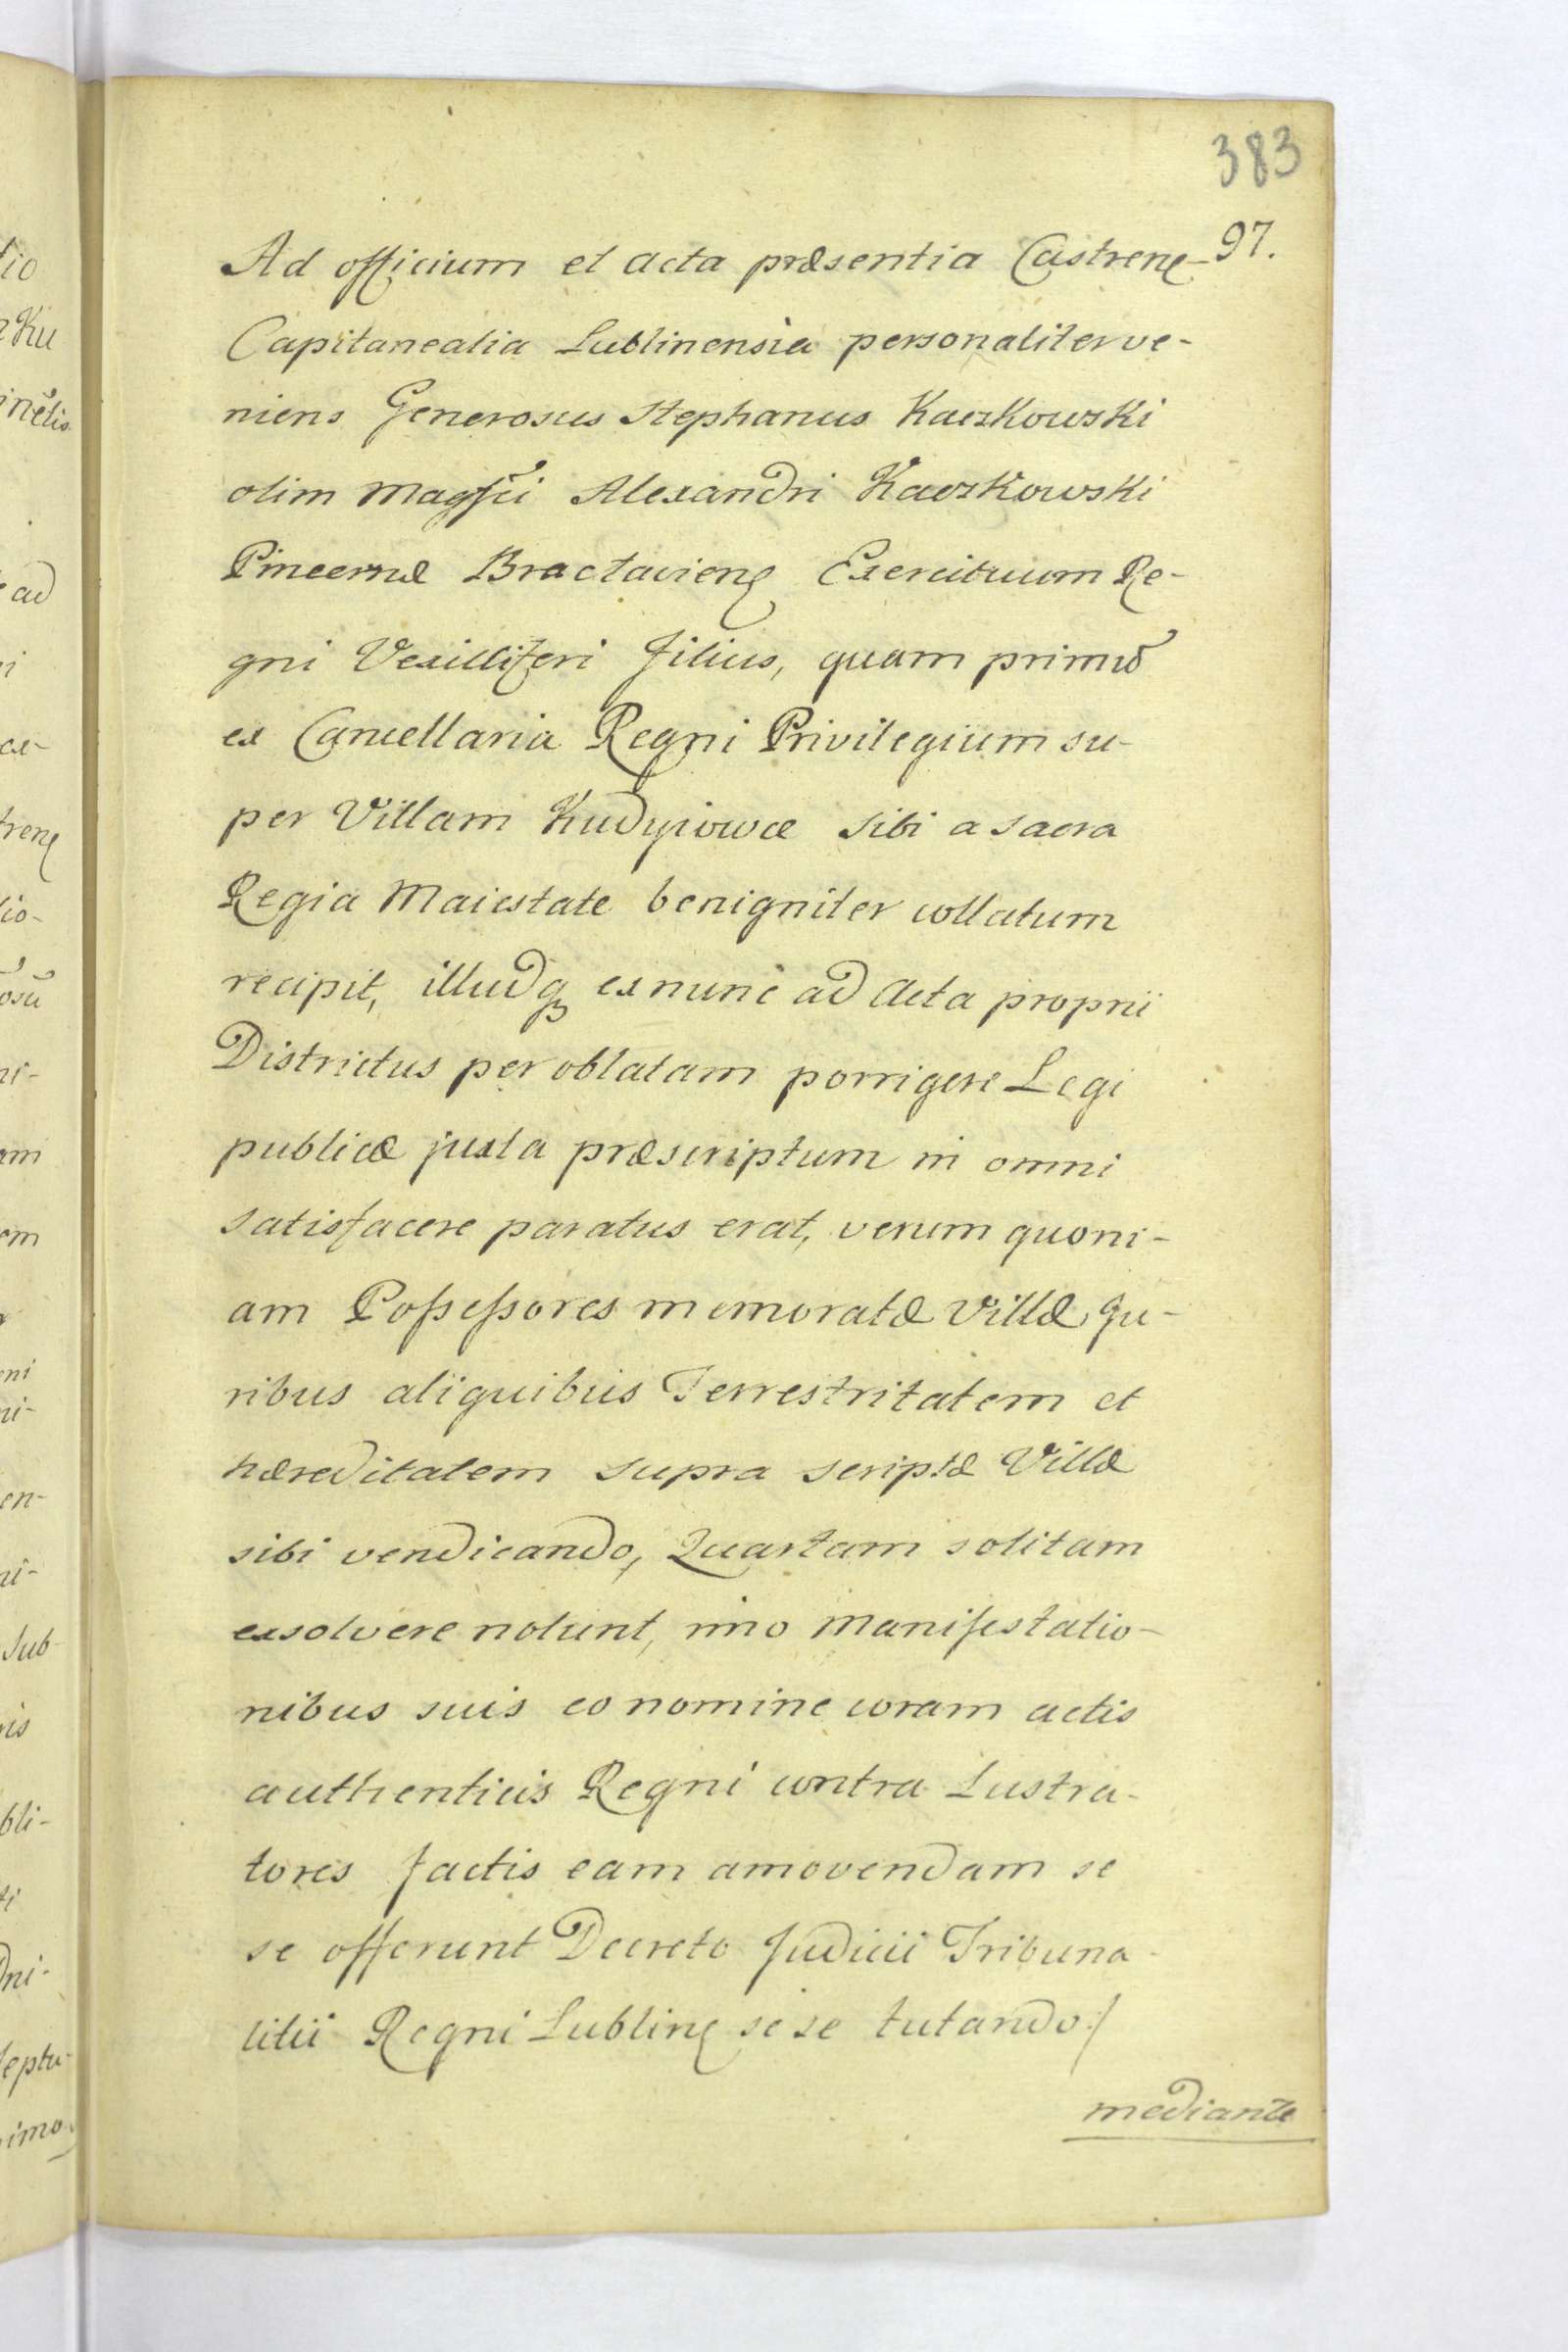 383
97.
Ad officium et acta præsentia Castrenę
Capitanealia Lublinensia personaliter ve-
niens Generosus Stephanus Kaczkowski
olim Magfci Alexandri Kaczkowski
Pincernæ Bractavienę Exercituum Re-
gni Vexilliferi filius, quam primū
ex Cancellaria Regni Privilegium su-
per Villam sibi a sacra
Regia Maiestate benigniter collatum
recipit, illudq₃ ex nunc ad Acta proprii
Districtus per oblatam porrigere Legi
publicæ juxta præscriptum in omni
satisfacere paratus erat, verum quoni-
am Poſseſsores memoratæ Villæ Ju-
ribus aliquibus Terrestritatem et
hæreditatem supra scriptæ Villæ
sibi vendicando, Quartam solitam
exsolvere nolunt, imo Manifestatio-
nibus suis eo nomine coram actis
authenticis Regni contra Lustra-
tores factis eam amovendam se
se offerunt Decreto Judicii Tribuna-
litii Regni Lublinę sese tutando/
mediante
tio
Ku
ad
i
ex-
trenę
lio-
osū
ni-
am
om
eni
ni-
en-
ni-
Sub-
ris
bli-
ti
Dni-
septu-
imo